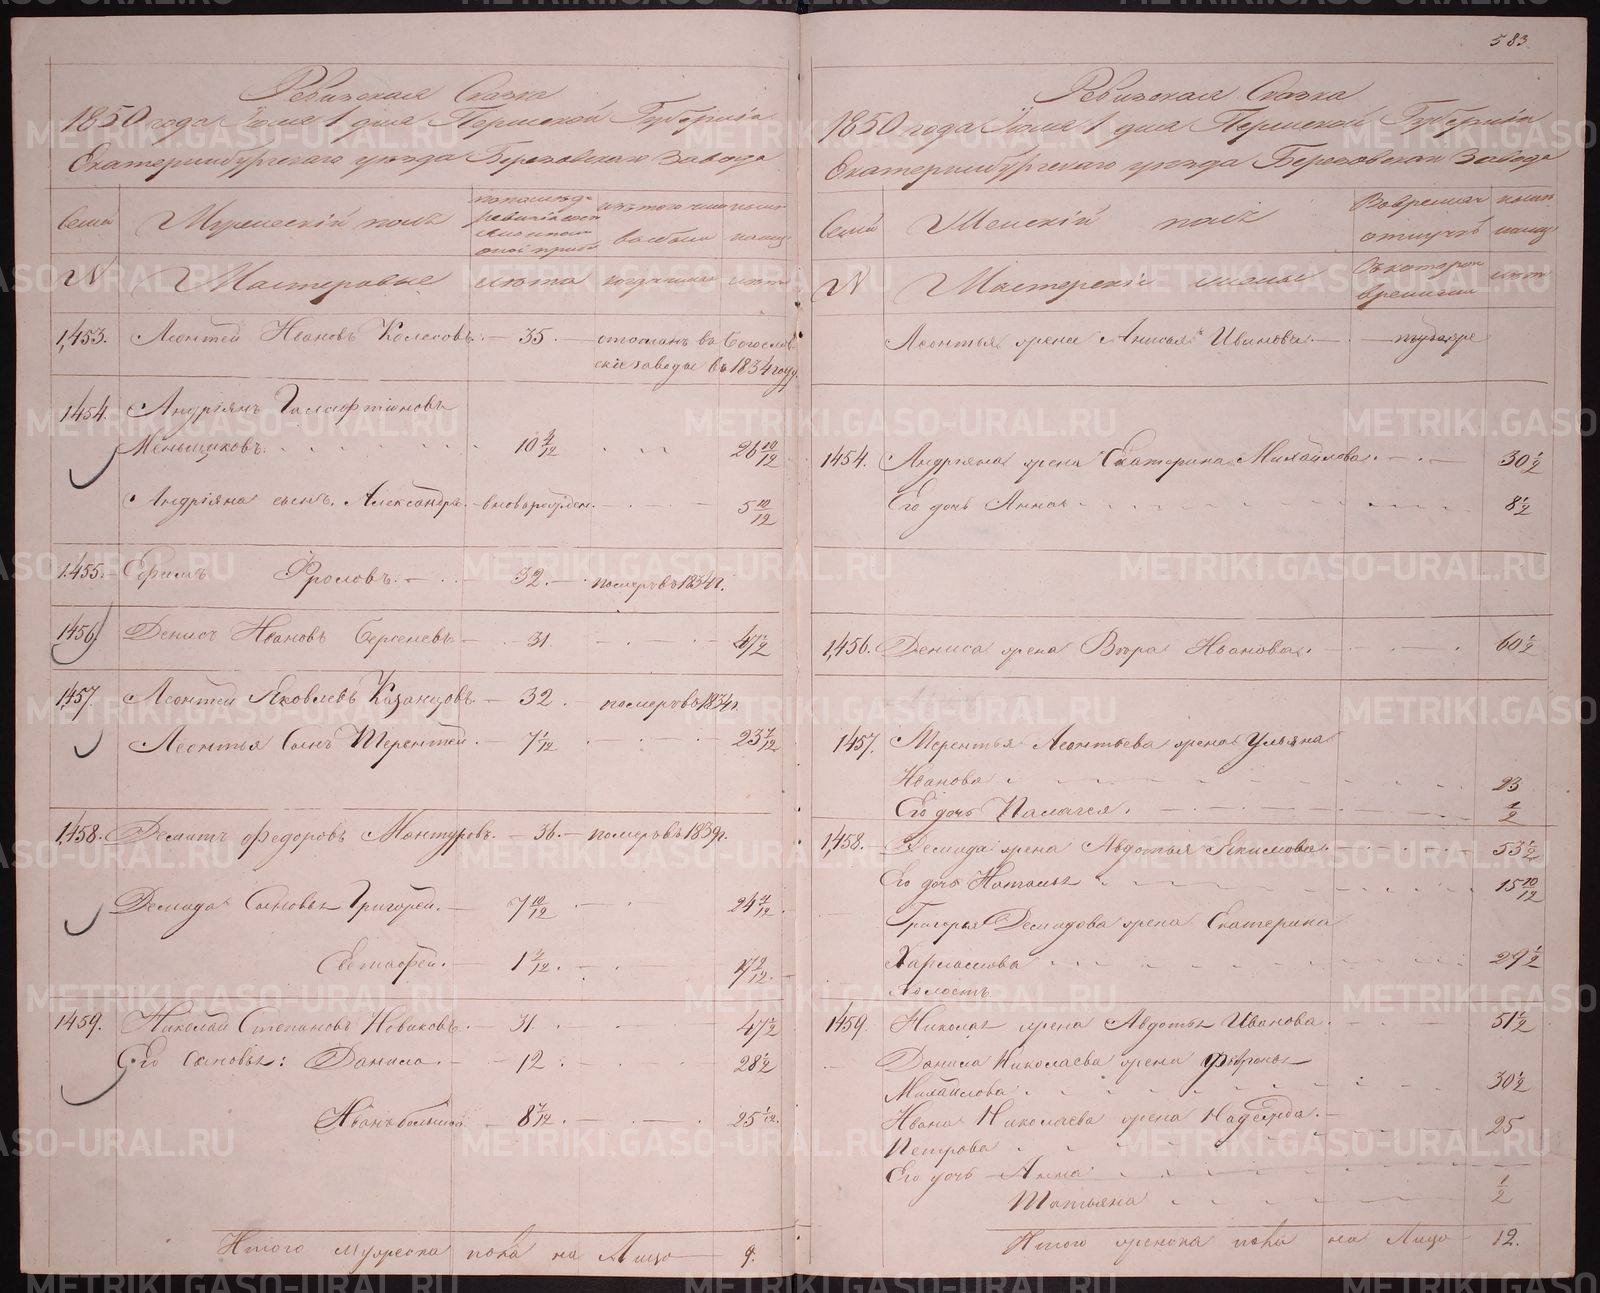 583
Ревизская Сказка
1850 года Июля 1 дня Пермской Губернiи
Екатеринбургскаго уезда Березовскаго Завода
Семьи
Мужескiй полъ
изъ того числа
выбыли
ныне
налицо
N
Мастеровые
лета
когда именно
лета
1,453. Леонтей Ивановъ Колесовъ. — 35. — отосланъ въ Богослов
скiе заводы въ 1834 году.
1,454. Андрiянъ Галафтiоновъ
Меньщиковъ. 10 4/12 26 10/12
Андрiяна сынъ Александръ. — вновь рожден. — 5 10/12
1,455. — Ефимъ Фроловъ. — 32. — померъ въ 1834 г.
1456. Денисъ Ивановъ — 31 — 47 1/2
1,457. Леонтей Яковлевъ Казанцовъ. — 32. — померъ въ 1834 г.
Леонтья Сынъ Терентей. — 7 1/12 — 23 7/12
1,458. Демидъ Федоровъ Мантуровъ. — 36. — померъ въ 1839 г.
Демида Сыновья Григорей. — 7 10/12 — 24 4/12
Евстафей. — 1 2/12. — 17 9/12. —
1459. Николай Степановъ Новиковъ. — 31. — 47 1/2
Его сыновья: Данила. — 12. — 28 1/2
Иванъ большой — 8 7/12 — 25 1/12.
Итого мужеска пола на Лицо — 9.
Ревизская Сказка
1850 года Июля 1 дня Пермской Губернiи
Екатеринбургскаго уезда Березовскаго Завода
Семьи
Женскiй полъ
Во временной
отлучке
ныне
налицо
N
Мастерскiя жены
Съ котораго
времени
лета
Леонтья жена Анисья Иванова. — — тудаже
1454. Андрiяна жена Екатерина Михайлова. — 30 1/2
Его дочь Анна 8 1/2
1,456. Дениса жена Вера Иванова. — 60 1/2
1457. Терентья Леонтьева жена Ульяна
Иванова. 23
Его дочь Палагея. — 1/2
1,458. — Демида жена Авдотья Якимова. — 53 1/2
Его дочь Наталья 15 10/12
Григорья Демидова жена Екатерина
Харламова 29 1/2
Холостъ.
1459. Николая жена Авдотья Иванова. 51 1/2
Данила Николаева жена Феврónья
Михайлова. 30 1/2
Ивана Николаева жена Надежда. —
Петрова 25
Его дочь — Анна
Татьяна 1/2
Итого женска пола на Лицо 12.
METRIKI.GASO-URAL.RU